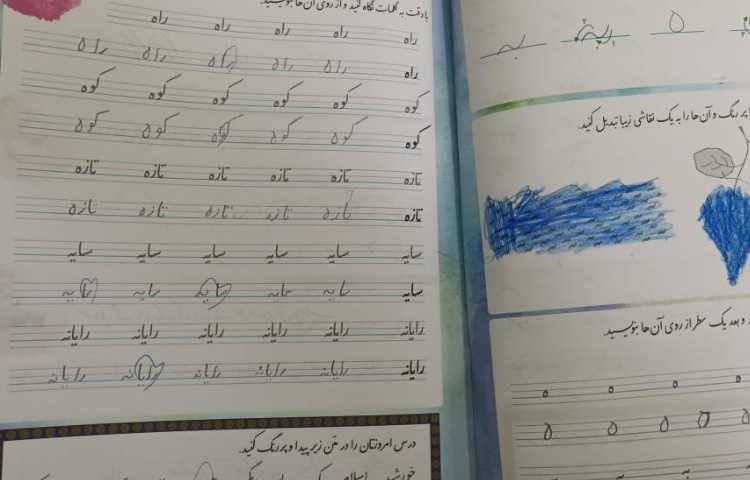 با دقت به کلمات نگاه کنید و از روی آن‌ها بنویسید.
راه راه راه راه راه
راه راه راه راه راه راه
کوه کوه کوه کوه کوه کوه
کوه کوه کوه کوه کوه کوه
تازه تازه تازه تازه تازه تازه
تازه تازه تازه تازه تازه تازه
سایه سایه سایه سایه سایه سایه
سایه سایه سایه سایه سایه سایه
رایانه رایانه رایانه رایانه رایانه رایانه
رایانه رایانه رایانه رایانه رایانه رایانه
درس امروزتان را در متن زیر پیدا و پررنگ کنید.
پر رنگ و آن‌ها را به یک نقاشی زیبا تبدیل کنید.
و بعد یک سطر از روی آن‌ها بنویسید.
ه ه ه ه
ه ه ه ه ه